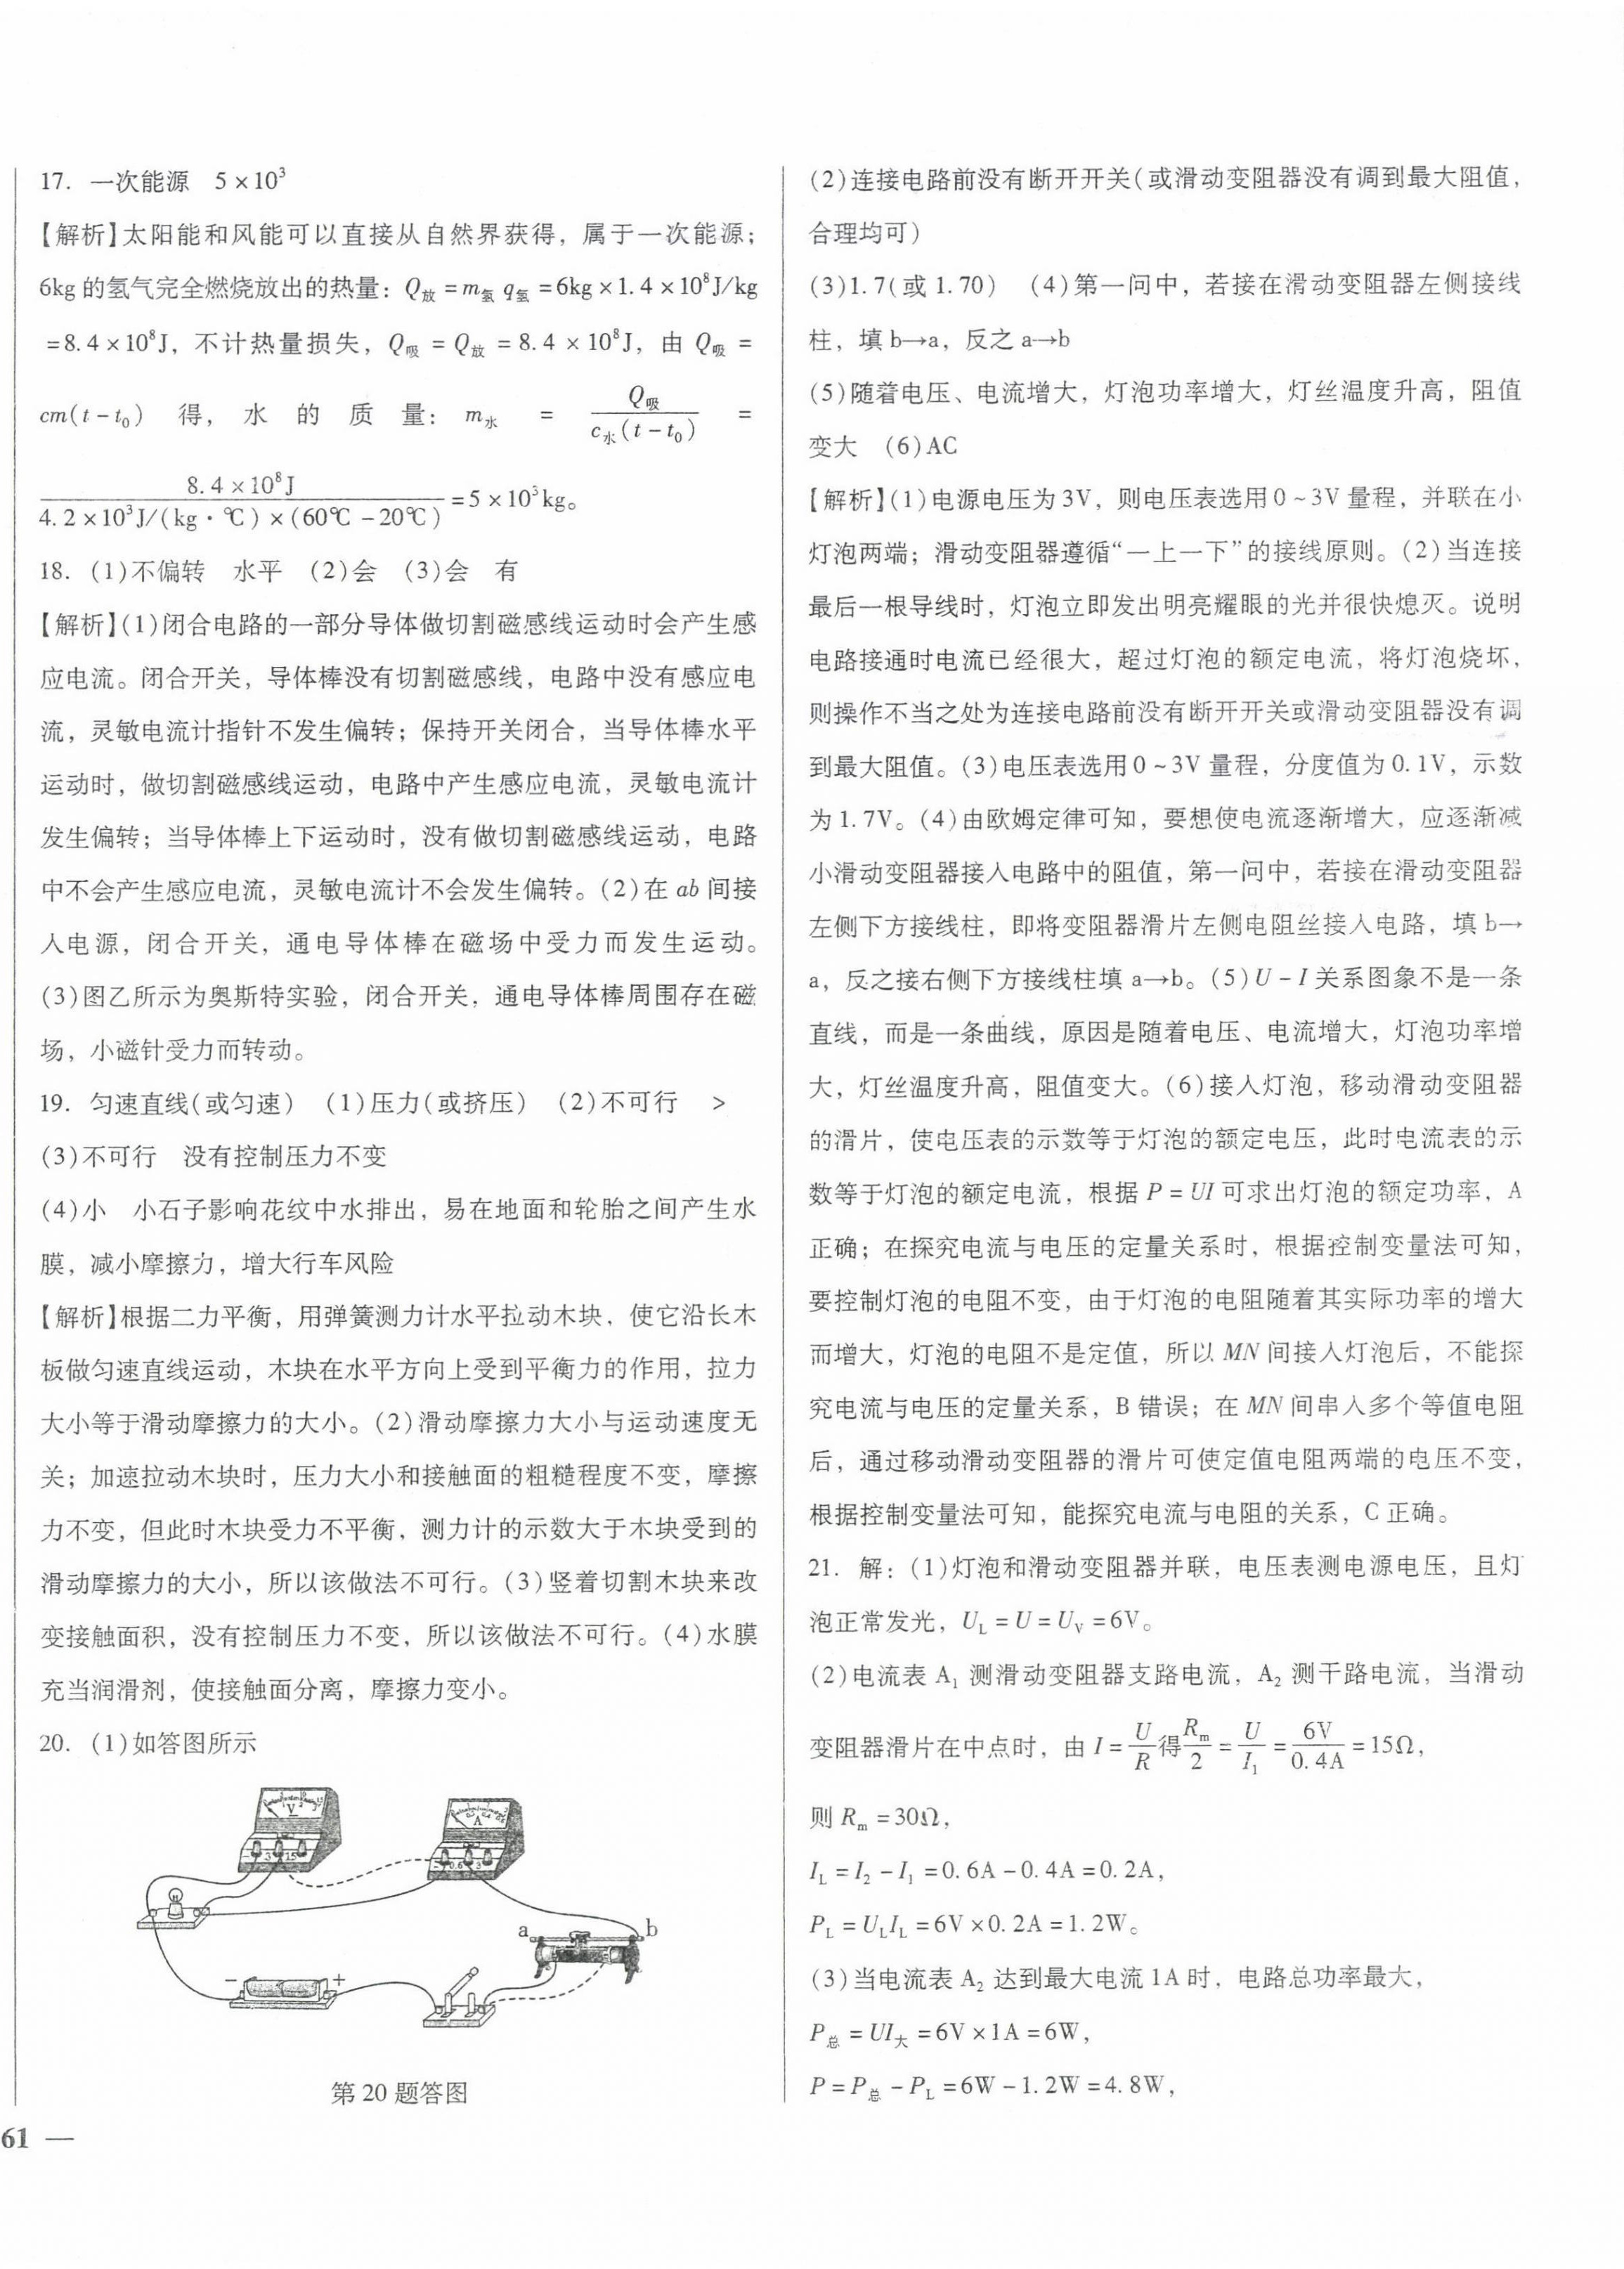 17. 一次能源　5×10³
【解析】太阳能和风能可以直接从自然界获得，属于一次能源；
6kg 的氢气完全燃烧放出的热量：Q放 =m氢 q氢 =6kg×1.4×10⁸J/kg
=8.4×10⁸J，不计热量损失，Q吸 = Q放 = 8.4 × 10⁸J，由 Q吸 =
cm(t-t₀) 得，水 的 质 量：m水 = Q吸/c水(t-t₀) =
8.4×10⁸J/4.2×10³J/(kg·℃)×(60℃-20℃) =5×10³kg。
18. (1)不偏转　水平　(2)会　(3)会　有
【解析】(1)闭合电路的一部分导体做切割磁感线运动时会产生感
应电流。闭合开关，导体棒没有切割磁感线，电路中没有感应电
流，灵敏电流计指针不发生偏转；保持开关闭合，当导体棒水平
运动时，做切割磁感线运动，电路中产生感应电流，灵敏电流计
发生偏转；当导体棒上下运动时，没有做切割磁感线运动，电路
中不会产生感应电流，灵敏电流计不会发生偏转。(2)在 ab 间接
入电源，闭合开关，通电导体棒在磁场中受力而发生运动。
(3)图乙所示为奥斯特实验，闭合开关，通电导体棒周围存在磁
场，小磁针受力而转动。
19. 匀速直线(或匀速)　(1)压力(或挤压)　(2)不可行　>
(3)不可行　没有控制压力不变
(4)小　小石子影响花纹中水排出，易在地面和轮胎之间产生水
膜，减小摩擦力，增大行车风险
【解析】根据二力平衡，用弹簧测力计水平拉动木块，使它沿长木
板做匀速直线运动，木块在水平方向上受到平衡力的作用，拉力
大小等于滑动摩擦力的大小。(2)滑动摩擦力大小与运动速度无
关；加速拉动木块时，压力大小和接触面的粗糙程度不变，摩擦
力不变，但此时木块受力不平衡，测力计的示数大于木块受到的
滑动摩擦力的大小，所以该做法不可行。(3)竖着切割木块来改
变接触面积，没有控制压力不变，所以该做法不可行。(4)水膜
充当润滑剂，使接触面分离，摩擦力变小。
20. (1)如答图所示
V
- 3 15
A
- 0.6 3
a
b
-
+
第 20 题答图
61 —
(2)连接电路前没有断开开关(或滑动变阻器没有调到最大阻值，
合理均可)
(3)1.7(或 1.70)　(4)第一问中，若接在滑动变阻器左侧接线
柱，填 b→a，反之 a→b
(5)随着电压、电流增大，灯泡功率增大，灯丝温度升高，阻值
变大　(6)AC
【解析】(1)电源电压为 3V，则电压表选用 0～3V 量程，并联在小
灯泡两端；滑动变阻器遵循“一上一下”的接线原则。(2)当连接
最后一根导线时，灯泡立即发出明亮耀眼的光并很快熄灭。说明
电路接通时电流已经很大，超过灯泡的额定电流，将灯泡烧坏，
则操作不当之处为连接电路前没有断开开关或滑动变阻器没有调
到最大阻值。(3)电压表选用 0～3V 量程，分度值为 0.1V，示数
为 1.7V。(4)由欧姆定律可知，要想使电流逐渐增大，应逐渐减
小滑动变阻器接入电路中的阻值，第一问中，若接在滑动变阻器
左侧下方接线柱，即将变阻器滑片左侧电阻丝接入电路，填 b→
a，反之接右侧下方接线柱填 a→b。(5)U-I 关系图象不是一条
直线，而是一条曲线，原因是随着电压、电流增大，灯泡功率增
大，灯丝温度升高，阻值变大。(6)接入灯泡，移动滑动变阻器
的滑片，使电压表的示数等于灯泡的额定电压，此时电流表的示
数等于灯泡的额定电流，根据 P=UI 可求出灯泡的额定功率，A
正确；在探究电流与电压的定量关系时，根据控制变量法可知，
要控制灯泡的电阻不变，由于灯泡的电阻随着其实际功率的增大
而增大，灯泡的电阻不是定值，所以 MN 间接入灯泡后，不能探
究电流与电压的定量关系，B 错误；在 MN 间串入多个等值电阻
后，通过移动滑动变阻器的滑片可使定值电阻两端的电压不变，
根据控制变量法可知，能探究电流与电阻的关系，C 正确。
21. 解：(1)灯泡和滑动变阻器并联，电压表测电源电压，且灯
泡正常发光，U_L=U=U_V=6V。
(2)电流表 A₁ 测滑动变阻器支路电流，A₂ 测干路电流，当滑动
变阻器滑片在中点时，由 I=U/R 得 R_m/2=U/I₁=6V/0.4A=15Ω，
则 R_m=30Ω，
I_L=I₂-I₁=0.6A-0.4A=0.2A，
P_L=U_L I_L=6V×0.2A=1.2W。
(3)当电流表 A₂ 达到最大电流 1A 时，电路总功率最大，
P总=UI大=6V×1A=6W，
P=P总-P_L=6W-1.2W=4.8W，